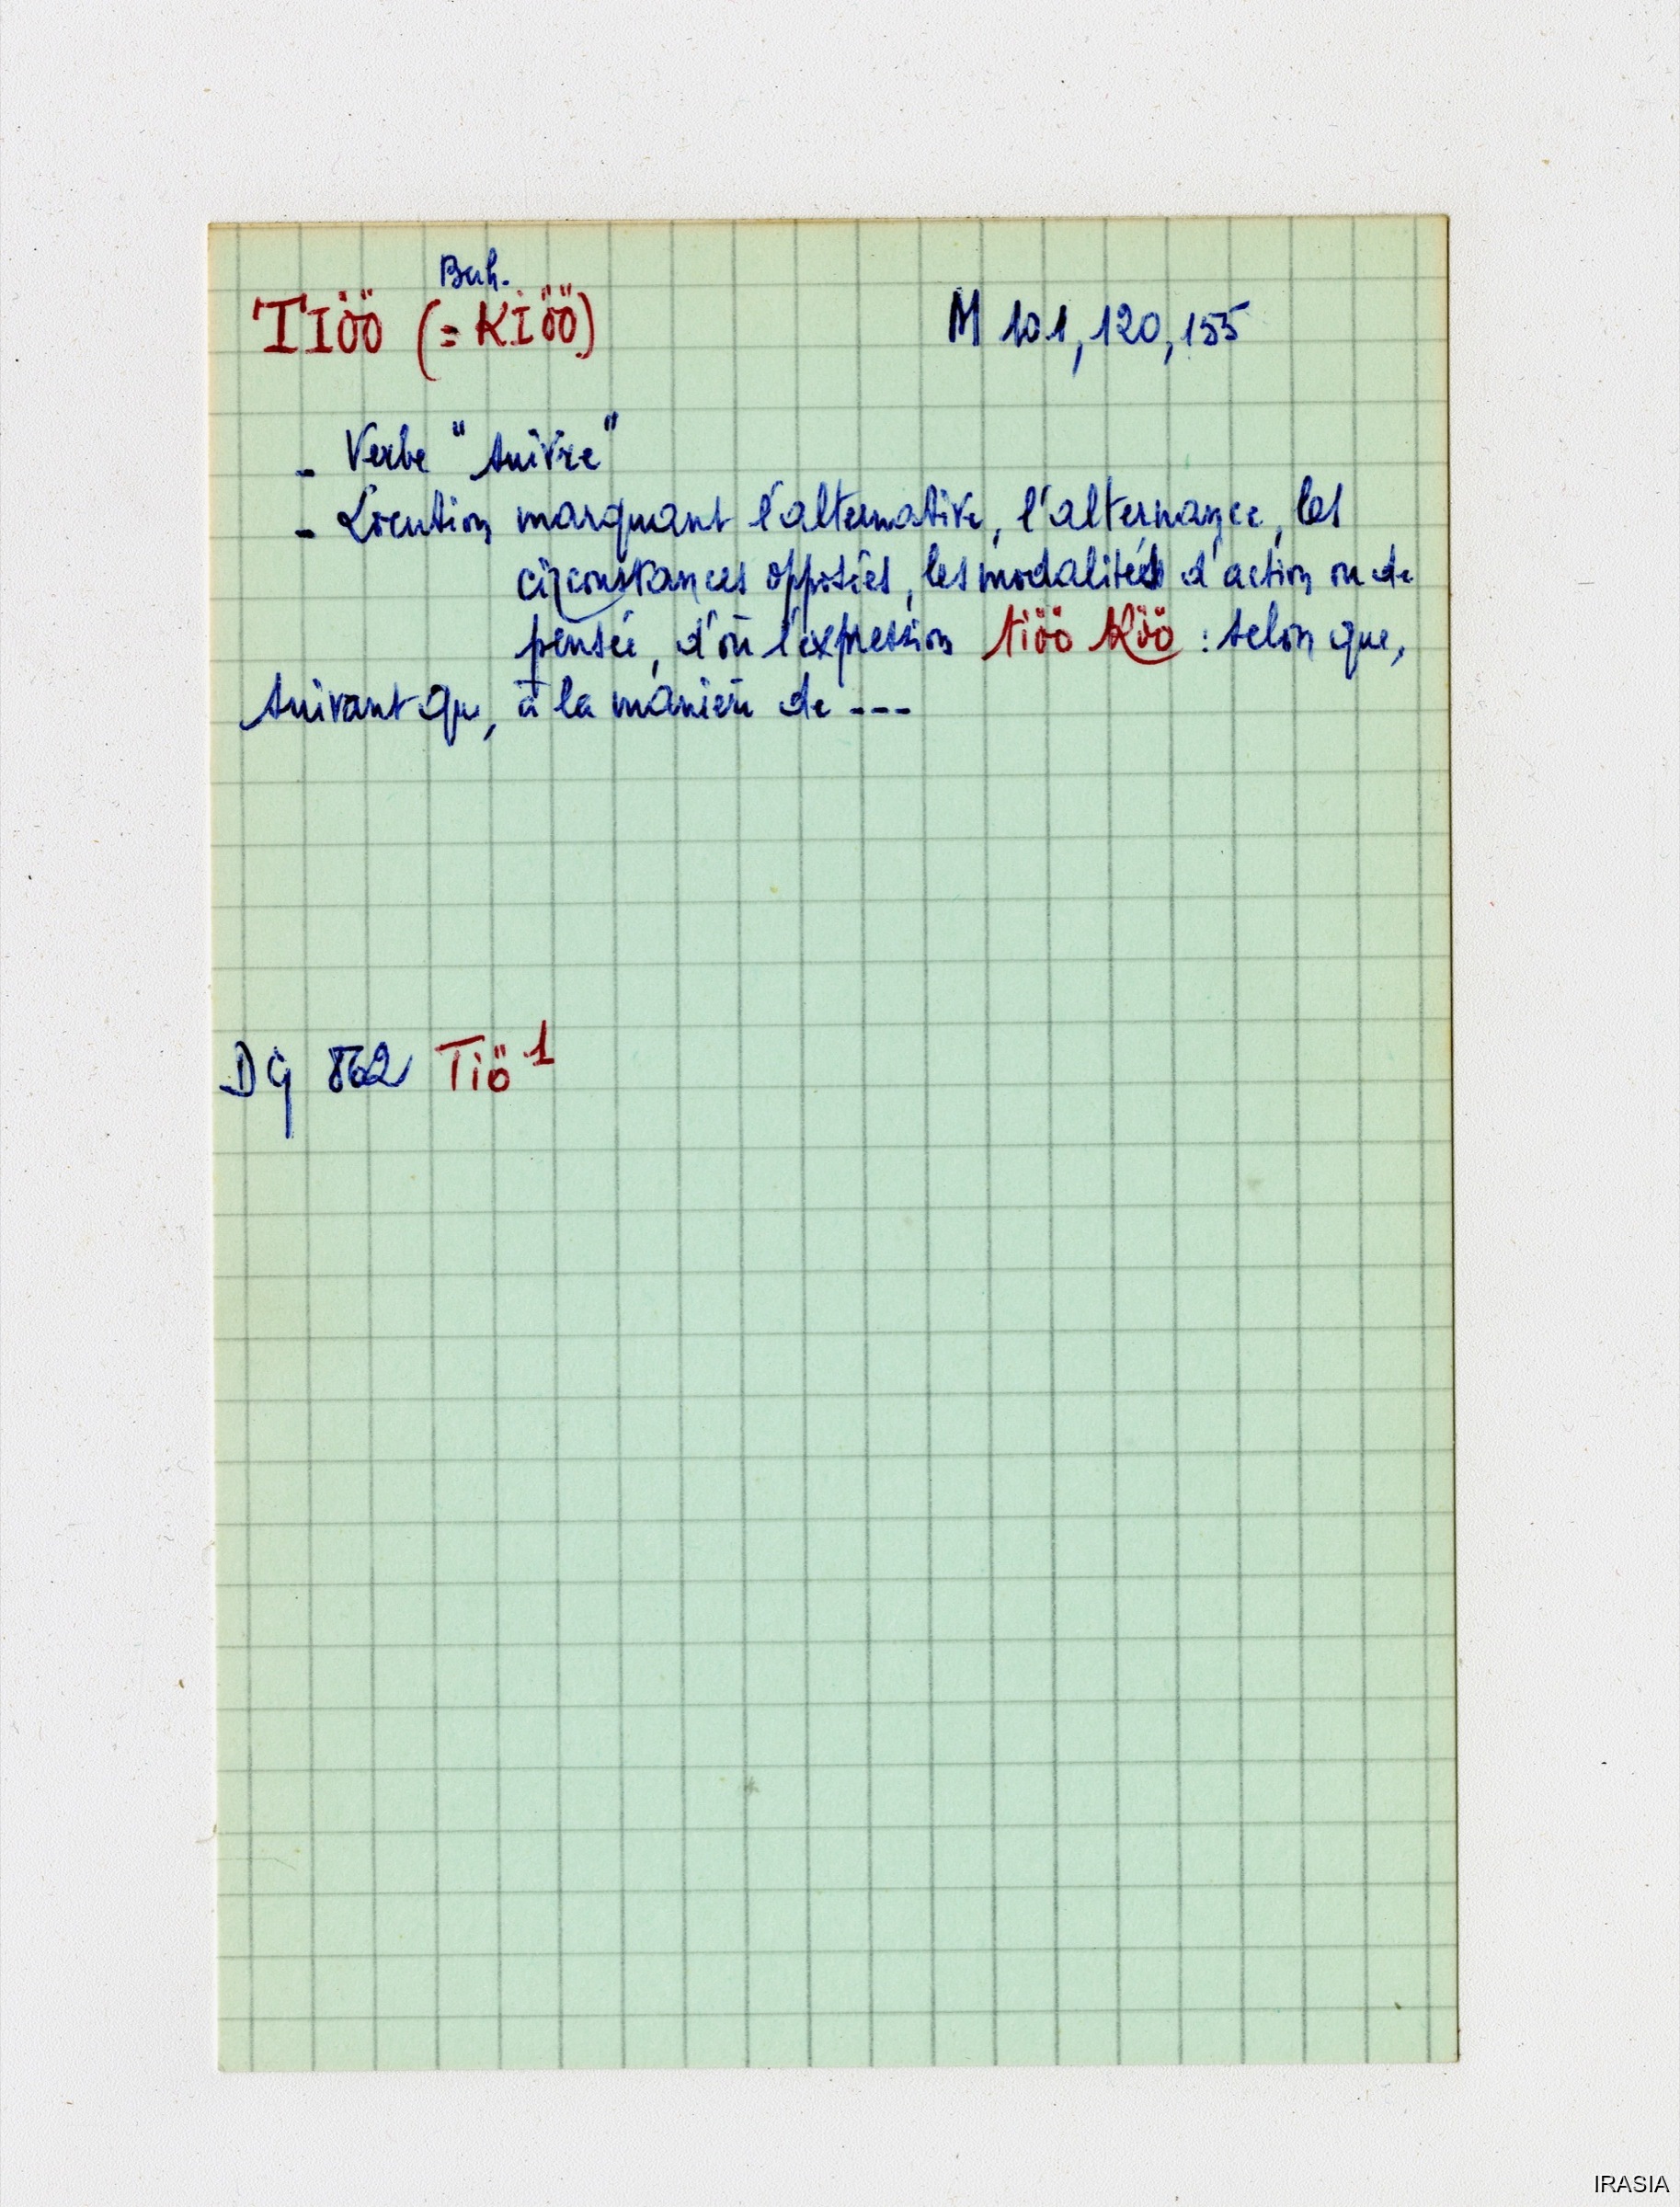 Bah.
TIÖÖ (= KIÖÖ) M 101, 120, 155
- Verbe "suivre"
- Locution marquant l'alternative, l'alternance, les
circonstances opposées, les modalités d'action ou de
pensée, d'où l'expression tiöö köö : selon que,
suivant que, à la manière de ---
DG 862 Tiö 1
IRASIA